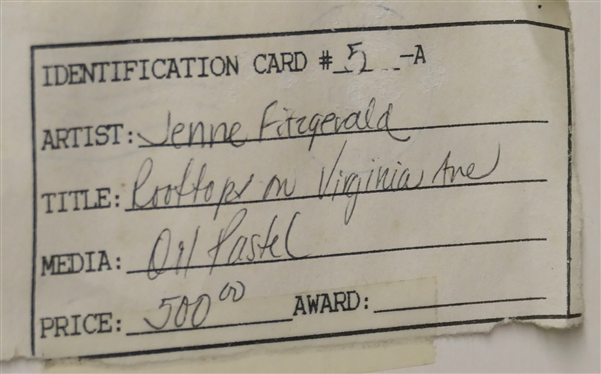 IDENTIFICATION CARD # 5 -A
ARTIST: Jenne Fitzgerald
TITLE: Rooftops on Virginia Ave
MEDIA: Oil Pastel
PRICE: 500.00 AWARD: